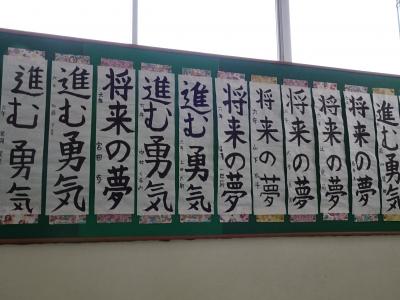 進む勇気
将来の夢
将来の夢
将来の夢
将来の夢
将来の夢
進む勇気
進む勇気
将来の夢
進む勇気
進む勇気